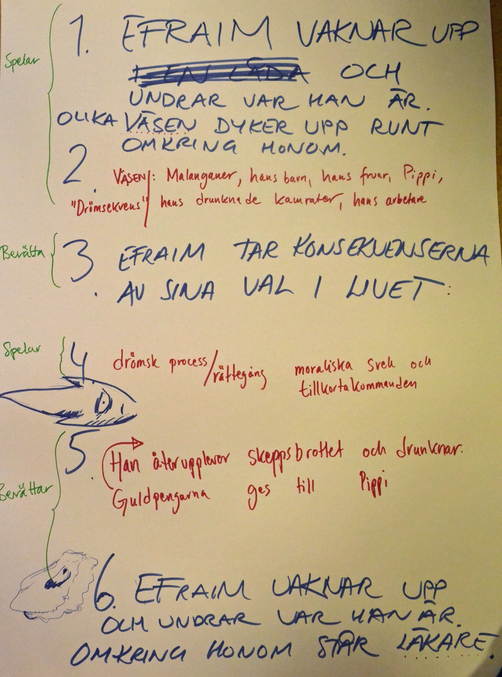 Spelar
1. EFRAIM VAKNAR UPP
I EN LÅDA OCH
UNDRAR VAR HAN ÄR.
OLIKA VÄSEN DYKER UPP RUNT
OMKRING HONOM.
2. VÄSEN: Malanganer, hans barn, hans fruar, Pippi,
"Drömsekvens" hans drunknade kamrater, hans arbetare
Berätta
3. EFRAIM TAR KONSEKVENSERNA
AV SINA VAL I LIVET:
Spelar
4. drömsk process/rättegång moraliska svek och
tillkortakommanden
5. Han återupplever skeppsbrottet och drunknar.
Guldpengarna ges till Pippi
Berättar
6. EFRAIM VAKNAR UPP
OCH UNDRAR VAR HAN ÄR.
OMKRING HONOM STÅR LÄKARE.